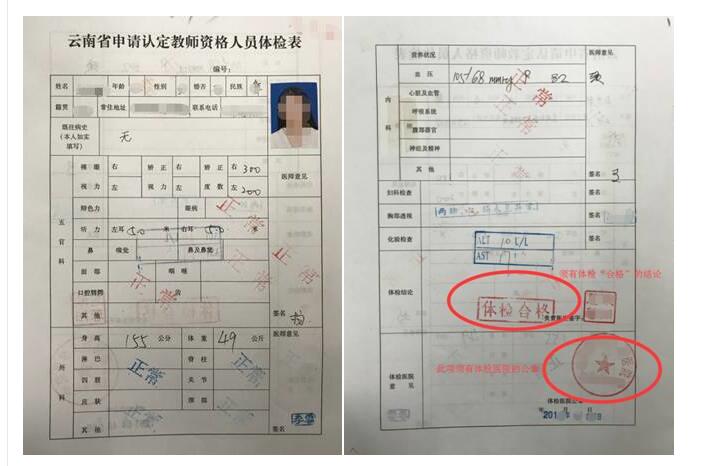 云南省申请认定教师资格人员体检表
编号：
姓名 年龄 性别 婚否 民族
籍贯 常住地址 联系电话
既往病史
（本人如实
填写）
无
裸眼 右 矫正 右 矫正 右 300 医师意见
视力 左 视力 左 度数 左 200
辩色力 眼病
正常
听力 左耳 5.0 米 右耳 5.0 米
五官科
鼻 嗅觉 鼻及鼻窦
正常
面部 咽喉
口腔唇腭 齿
其他 签名
身高 155 公分 体重 49 公斤 医师意见
外科
淋巴 脊柱
正常 正常
四肢 关节
皮肤 颈部
其他 签名
营养状况 医师意见
血压 105/68 mmHg P 82
正常
内科
心脏及血管
呼吸系统
腹部器官
神经及精神
其他 签名
妇科检查 签名
胸部透视 签名
化验检查 ALT 10 签名
AST
须有体检“合格”的结论
体检结论 体检合格
此项须有体检医院的公章
体检医院
意见
年 月 日
201